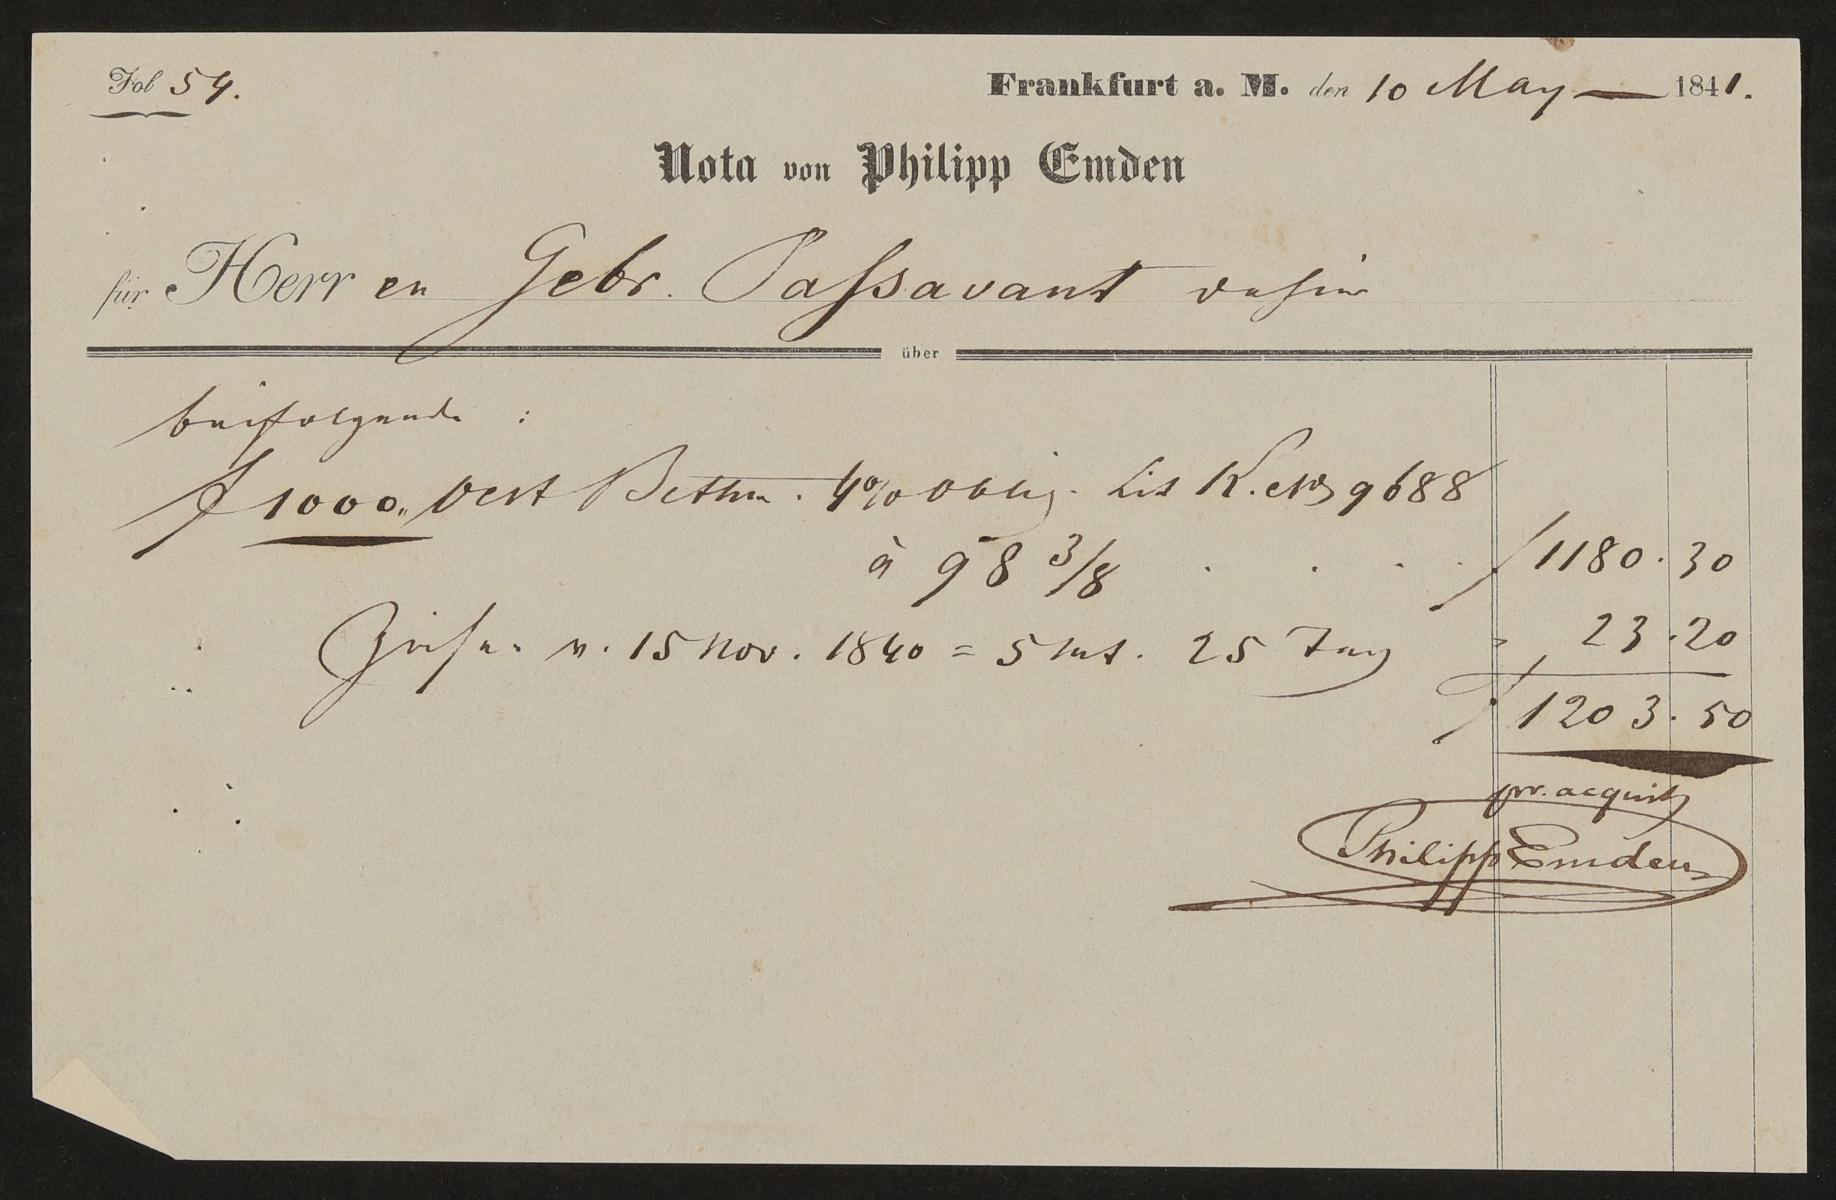 Fol 54.
Frankfurt a. M. den 10 May 1841.
Nota von Philipp Emden
für Herr en Gebr. Passavant dahier
über
beifolgende :
f 1000,, Oest Bethm. 4% Oblig. Lit K. No 9688
à 98 3/8 . . . . f 1180. 30
Zinsen v. 15 Nov. 1840 = 5 Mt. 25 Tag " 23. 20
f 1203. 50
pr. acquit
Philipp Emden